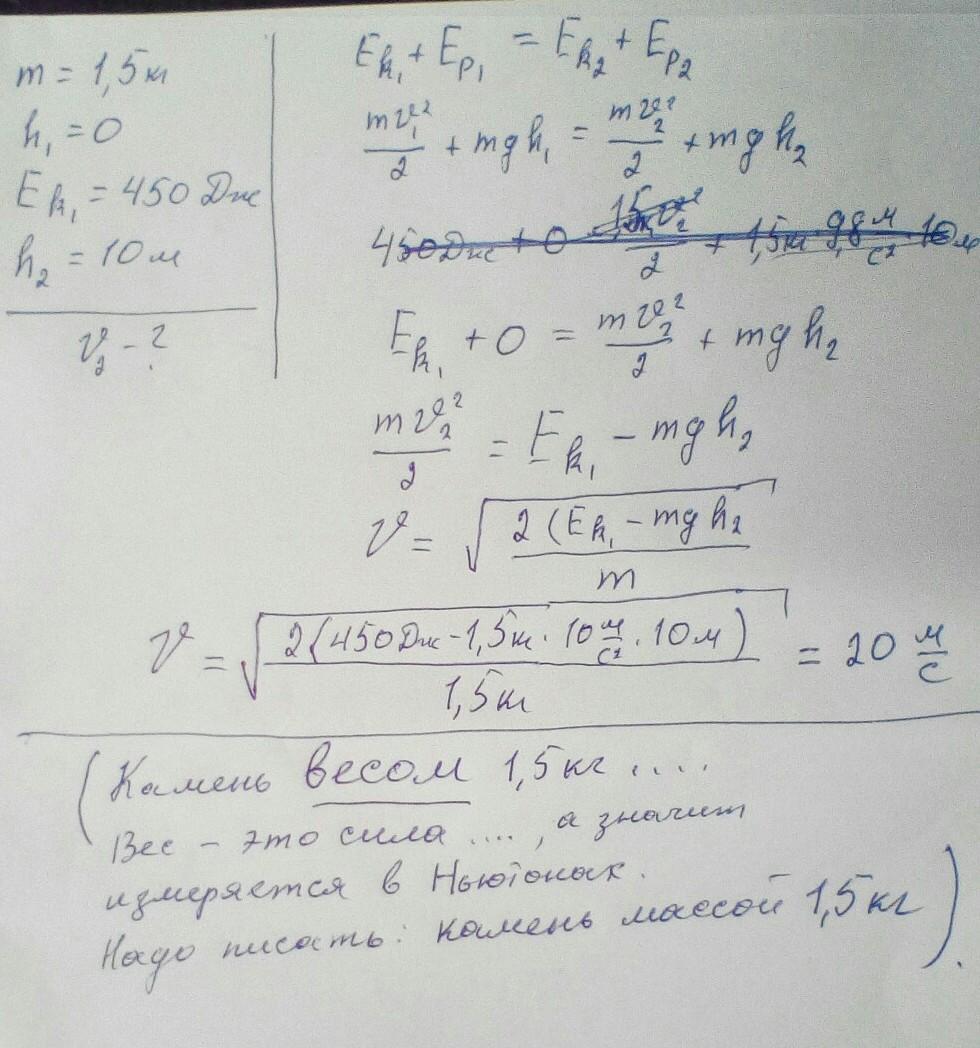 m = 1,5 кг
h₁ = 0
Eₖ₁ = 450 Дж
h₂ = 10 м
v₂ - ?
Eₖ₁ + Eₚ₁ = Eₖ₂ + Eₚ₂
mv₁²/2 + mgh₁ = mv₂²/2 + mgh₂
450 Дж + 0 1,5 v₂²/2 + 1,5 кг 9,8 м/с² 10 м
Eₖ₁ + 0 = mv₂²/2 + mgh₂
mv₂²/2 = Eₖ₁ - mgh₂
v = √(2(Eₖ₁ - mgh₂/m
v = √(2(450 Дж - 1,5 кг · 10 м/с² · 10 м)/1,5 кг) = 20 м/с
(Камень весом 1,5 кг ....
Вес - это сила ...., а значит
измеряется в Ньютонах.
Надо писать: камень массой 1,5 кг).